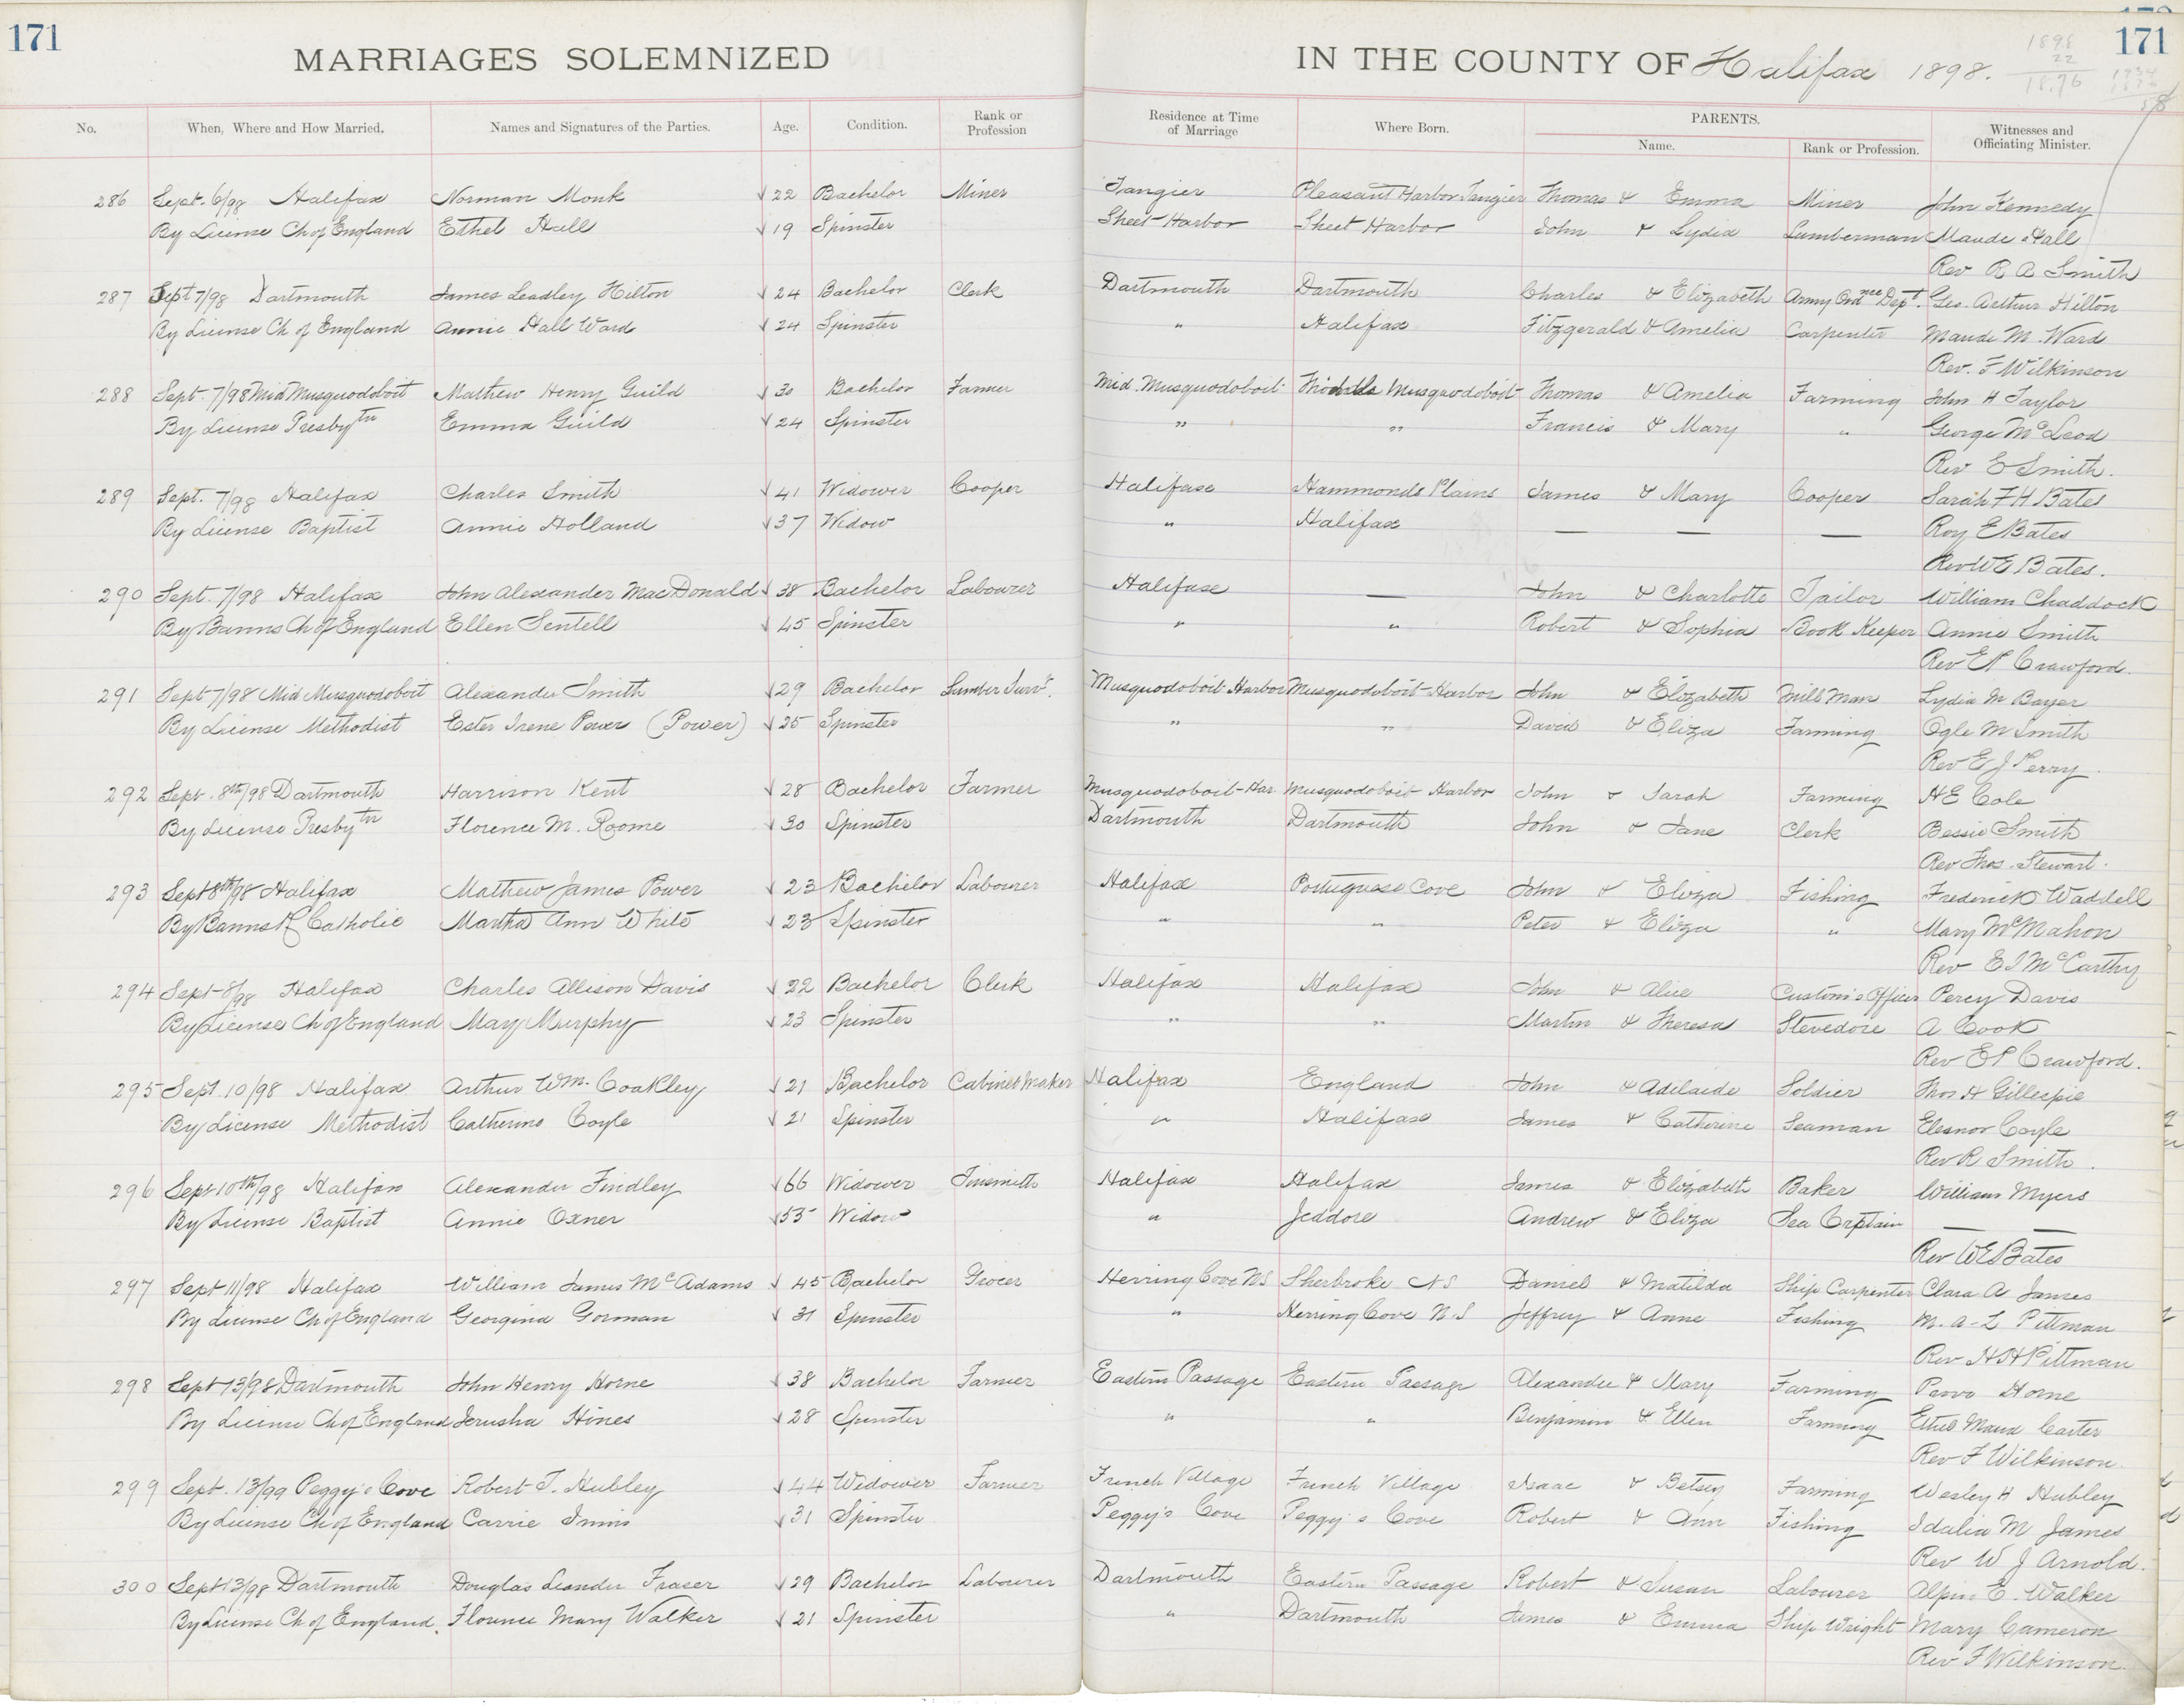 171
MARRIAGES SOLEMNIZED
IN THE COUNTY OF Halifax 1898.
1898
22
18.76
171
No.
When, Where and How Married.
Names and Signatures of the Parties.
Age.
Condition.
Rank or Profession
Residence at Time of Marriage
Where Born.
PARENTS.
Name.
Rank or Profession.
Witnesses and Officiating Minister.
286 Sept. 6/98 Halifax Norman Monk √22 Bachelor Miner Tangier Pleasant Harbor Tangier Thomas & Emma Miner John Kennedy
By License Ch of England Ethel Hall √19 Spinster Sheet Harbor Sheet Harbor John & Lydia Lumberman Maude Hall
Rev R A Smith
287 Sept 7/98 Dartmouth James Leadley Hilton √24 Bachelor Clerk Dartmouth Dartmouth Charles & Elizabeth Army Ordnce Dept. Geo. Arthur Hilton
By License Ch of England Annie Hall Ward √24 Spinster " Halifax Fitzgerald & Amelia Carpenter Maude M. Ward
Rev. F Wilkinson
288 Sept. 7/98 Mid Musquodoboit Mathew Henry Guild √30 Bachelor Farmer Mid. Musquodoboit Middle Musquodoboit Thomas & Amelia Farming John H Taylor
By License Presbytn Emma Guild √24 Spinster " " Francis & Mary " George McLeod
Rev E Smith.
289 Sept. 7/98 Halifax Charles Smith √41 Widower Cooper Halifax Hammonds Plains James & Mary Cooper Sarah F H Bates
By License Baptist Annie Holland √37 Widow " Halifax — — — Roy E Bates
Rev W E Bates.
290 Sept. 7/98 Halifax John Alexander MacDonald √38 Bachelor Labourer Halifax — John & Charlotte Tailor William Chaddock
By Banns Ch of England Ellen Sentell √45 Spinster " " Robert & Sophia Book Keeper Annie Smith
Rev E P Crawford.
291 Sept 7/98 Mid Musquodoboit Alexander Smith √29 Bachelor Lumber Survr. Musquodoboit Harbor Musquodoboit Harbor John & Elizabeth Mill Man Lydia M Bayer
By License Methodist Ester Irene Power (Power) √25 Spinster " " David & Eliza Farming Ogle M Smith
Rev E J Perry.
292 Sept. 8th/98 Dartmouth Harrison Kent √28 Bachelor Farmer Musquodoboit Har. Musquodoboit Harbor John & Sarah Farming H E Cole
By License Presbytn Florence M. Roome √30 Spinster Dartmouth Dartmouth John & Jane Clerk Bessie Smith
Rev Thos. Stewart.
293 Sept 8th/98 Halifax Mathew James Power √23 Bachelor Labourer Halifax Portuguese Cove John & Eliza Fishing Frederick Waddell
By Banns R Catholic Martha Ann White √23 Spinster " " Peter & Eliza " Mary McMahon
Rev E I McCarthy
294 Sept 8/98 Halifax Charles Allison Davis √22 Bachelor Clerk Halifax Halifax John & Alice Custom's Officer Percy Davis
By License Ch of England Mary Murphy √23 Spinster " " Martin & Theresa Stevedore A Cook
Rev E P Crawford.
295 Sept. 10/98 Halifax Arthur Wm. Coakley √21 Bachelor Cabinet Maker Halifax England John & Adelaide Soldier Thos H Gillespie
By License Methodist Catherine Coyle √21 Spinster " Halifax James & Catherine Seaman Eleanor Coyle
Rev R Smith.
296 Sept 10th/98 Halifax Alexander Findley √66 Widower Tinsmith Halifax Halifax James & Elizabeth Baker William Myers
By License Baptist Annie Oxner √55 Widow " Jeddore Andrew & Eliza Sea Captain — —
Rev W E Bates
297 Sept 11/98 Halifax William James McAdams √45 Bachelor Grocer Herring Cove N S Sherbroke N S Daniel & Matilda Ship Carpenter Clara A James
By License Ch of England Georgina Gorman √31 Spinster " Herring Cove N. S Jeffrey & Anne Fishing M. A-L Pittman
Rev H H Pittman
298 Sept 13/98 Dartmouth John Henry Horne √38 Bachelor Farmer Eastern Passage Eastern Passage Alexander & Mary Farming Horne
By License Ch of England Jerusha Hines √28 Spinster " " Benjamin & Ellen Farming Ethel Maud Carter
Rev F Wilkinson.
299 Sept. 13/99 Peggy's Cove Robert T. Hubley √44 Widower Farmer French Village French Village Isaac & Betsey Farming Wesley H Hubley
By License Ch of England Carrie Innis √31 Spinster Peggy's Cove Peggy's Cove Robert & Ann Fishing Idalia M James
Rev W J Arnold.
300 Sept 13/98 Dartmouth Douglas Leander Fraser √29 Bachelor Labourer Dartmouth Eastern Passage Robert & Susan Labourer E. Walker
By License Ch of England. Florence Mary Walker √21 Spinster " Dartmouth James & Emma Ship Wright Mary Cameron
Rev F Wilkinson.